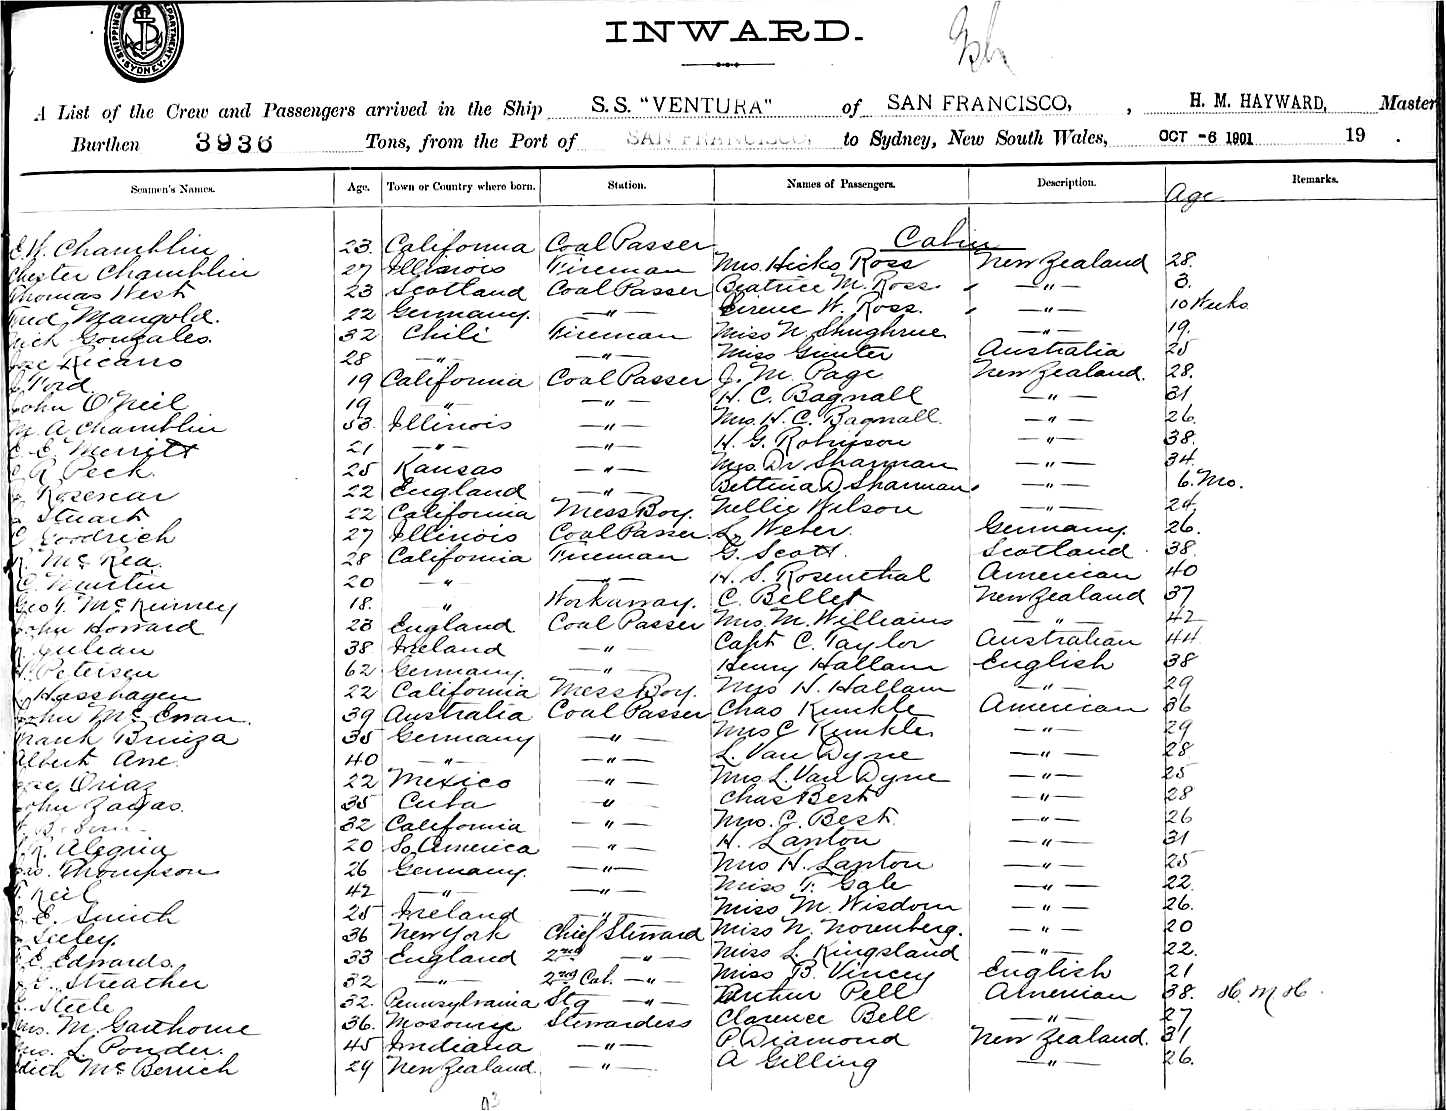 SHIPPING DEPARTMENT. SYDNEY.
INWARD.
A List of the Crew and Passengers arrived in the Ship S.S. "VENTURA" of SAN FRANCISCO, , H. M. HAYWARD, Master
Burthen 3936 Tons, from the Port of SAN FRANCISCO, to Sydney, New South Wales, OCT -6 1901 19 .
Seamen's Names. Age. Town or Country where born. Station. Names of Passengers. Description. Age Remarks.
Cabin
Chamblin 23 California Coal Passer
Chester Chamblin 27 Illinois Fireman Mrs. Hicks Ross New Zealand 28.
Thomas West 23 Scotland Coal Passer Beatrice M. Ross. — " — 3.
Fred Mangold. 22 Germany. — " — Eirene W. Ross. — " — 10 Weeks
Nick Gonzales. 32 Chili Fireman Miss N. Shughrue — " — 19.
Ricano 28 — " — — " — Miss Gunter Australia 25
Ford 19 California Coal Passer J. M. Page New Zealand. 28.
John O'Neil 19 " — — " — H. C. Bagnall — " — 31
M. A Chamblin 53. Illinois — " — Mrs. H. C. Bagnall. — " — 26.
E. Merritt 21 — " — — " — H. G. Robinson — " — 38.
R Peck 25 Kansas — " — Mrs. Dr Sharman — " — 34
Rosenear 22 England — " — Bettina D Sharman. — " — 6. Mo.
Stuart 22 California Mess Boy. Nellie Wilson — " — 24.
Goodrich 27 Illinois Coal Passer. L. Weber. Germany. 26.
R. McRea. 28 California Fireman G. Scott. Scotland. 38.
Martin 20 — " — — " — H. S. Rosenthal American 40
Geo. McKinney 18. " Workaway. C. Bellet New Zealand 37
John Howard 23 England Coal Passer Mrs. M. Williams — " — 42
Julian 38 Ireland — " — Capt C. Taylor Australian 44
Petersen 62 Germany. — " — Henry Hallam English 38
Hasshagen 22 California Mess Boy. Mrs H. Hallam — " — 29
John McEwan. 39 Australia Coal Passer Chas Kunkle American 36
Frank Bruiza 35 Germany — " — Mrs C Kunkle. — " — 29
Albert Ane. 40 — " — — " — L. Van Dyne — " — 28
22 Mexico — " — Mrs L. Van Dyne — " — 25
John Zayas. 35 Cuba — " — Chas Best — " — 28
32 California — " — Mrs. C. Best. — " — 26
R. Alegria 20 So America — " — H. Lanton — " — 31
Thompson 26 Germany. — " — Mrs H. Lanton — " — 25
Keil 42 — " — — " — Miss T. Gale — " — 22.
E. Smith 25 Ireland — " — Miss M. Wisdom — " — 26.
Seeley. 36 New York Chief Steward Miss N. Norenberg. — " — 20
E. Edwards. 33 England 2nd — " — Miss L. Kingsland — " — 22.
Streather 32 — " — 2nd Cab. — " — Miss B. Vincey English 21
Steele 32. Pennsylvania Stg — " — Arthur Pell American 38. H. M H.
Mrs. M. Garthorne 36. Stewardess Clarence Bell — " — 27
Mrs. L. Ponder. 45 Indiana — " — P. Diamond New Zealand. 31
Edith 29 New Zealand. — " — A Gilling — " — 26.
93